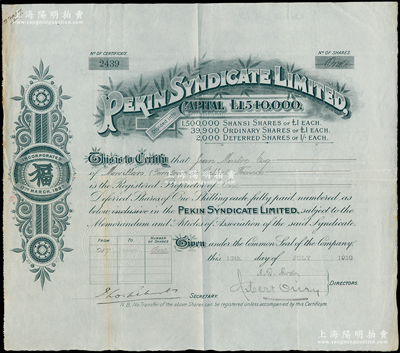 上海阳明拍卖
Nº OF CERTIFICATE
2439
Nº OF SHARES
PEKIN SYNDICATE LIMITED.
CAPITAL £1,540,000.
1,500,000 SHANSI SHARES OF £1 EACH.
39,900 ORDINARY SHARES OF £1 EACH.
2,000 DEFERRED SHARES OF 1/- EACH.
INCORPORATED
MARCH, 189
This is to Certify that Jean
of
is the Registered Proprietor of
Deferred Shares of One Shilling each fully paid, numbered as
below inclusive in the PEKIN SYNDICATE LIMITED, subject to the
Memorandum and Articles of Association of the said Syndicate.
FROM TO NUMBER OF SHARES
Given under the Common Seal of the Company,
this 13th day of JULY 1910
DIRECTORS.
SECRETARY.
N.B. No Transfer of the above Shares can be registered unless accompanied by this Certificate.
上海阳明拍卖